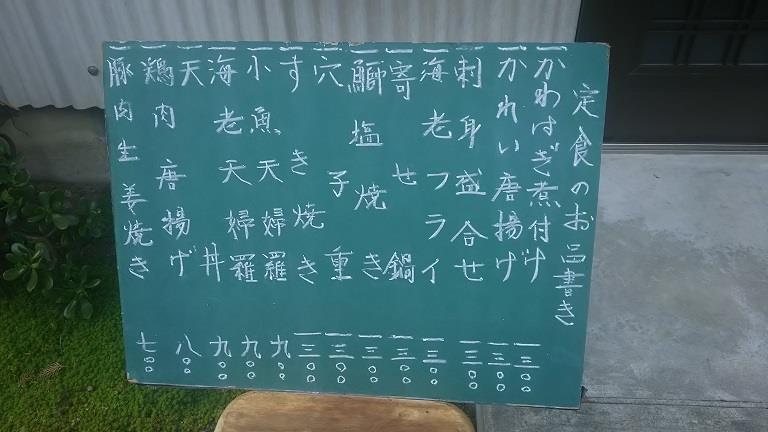 定食のお品書き
一かわはぎ煮付け 一三〇〇
一かれい唐揚げ 一三〇〇
一刺身盛合せ 一三〇〇
一海老フライ 一三〇〇
一寄せ鍋 一三〇〇
一鰤塩焼き 一三〇〇
一穴子重 一三〇〇
一すき焼き 一三〇〇
一小魚天婦羅 九〇〇
一海老天婦羅 九〇〇
一天丼 九〇〇
一鶏肉唐揚げ 八〇〇
一豚肉生姜焼き 七〇〇